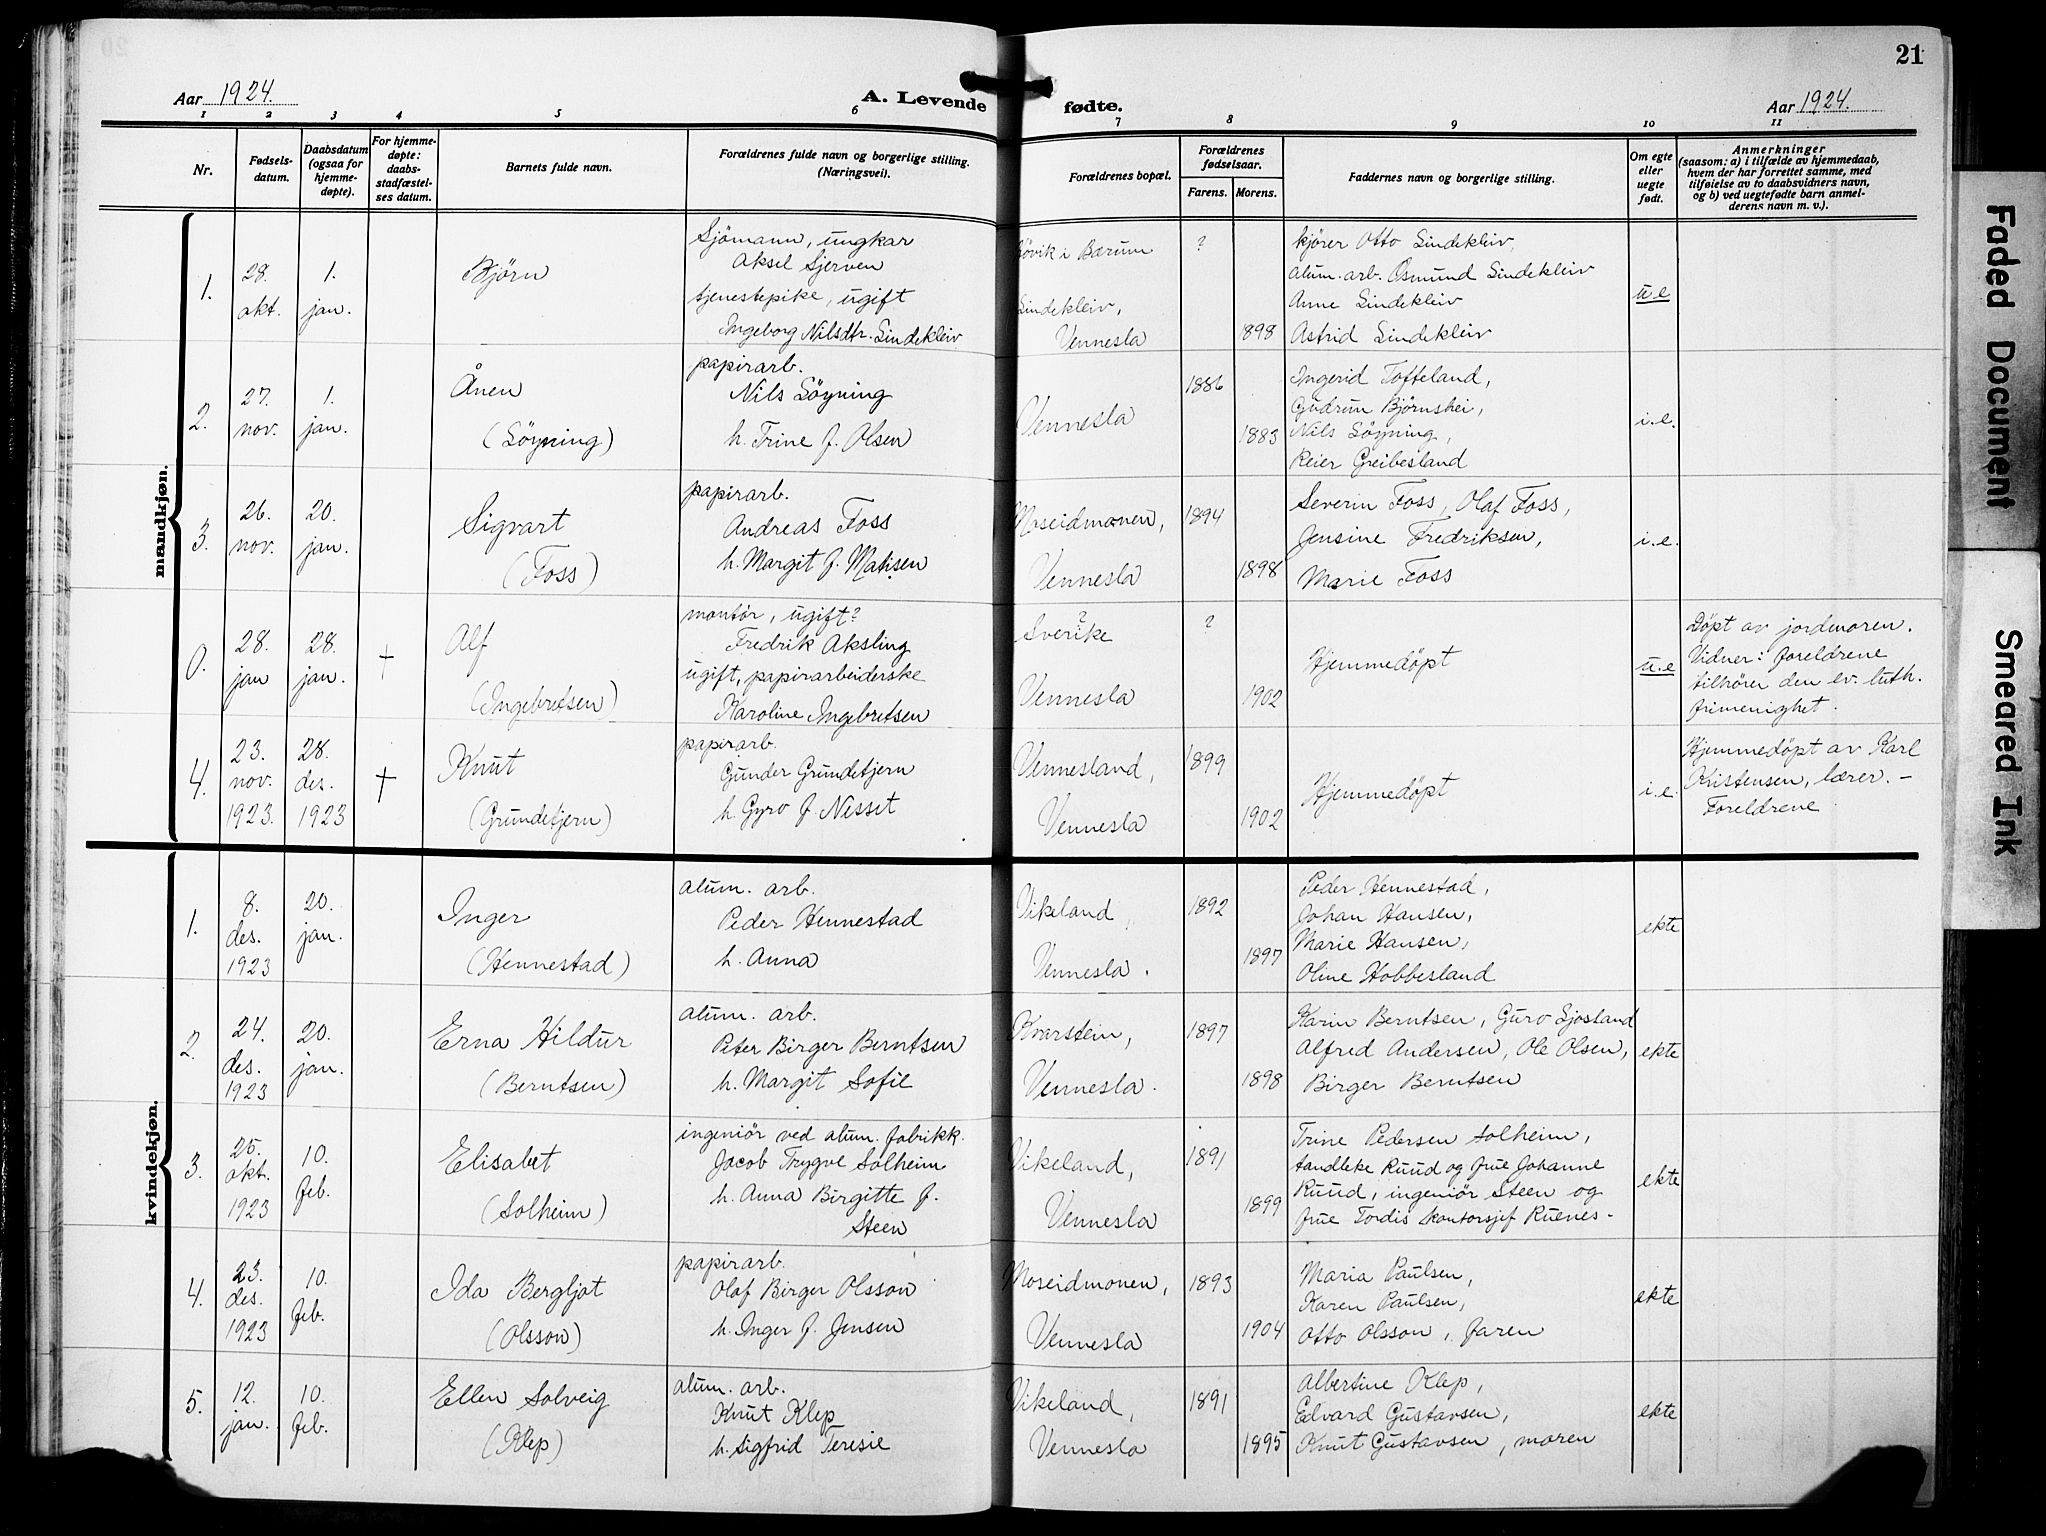 21
Aar 1924.
A. Levende fødte.
Aar 1924.
1 2 3 4 5 6 7 8 9 10 11
Nr.
Fødsels-
datum.
Daabsdatum
(ogsaa for
hjemme-
døpte).
For hjemme-
døpte:
daabs-
stadfæstel-
ses datum.
Barnets fulde navn.
Forældrenes fulde navn og borgerlige stilling.
(Næringsvei).
Forældrenes bopæl.
Forældrenes
fødselsaar.
Farens. Morens.
Faddernes navn og borgerlige stilling.
Om egte
eller
uegte
født.
Anmerkninger
(saasom: a) i tilfælde av hjemmedaab,
hvem der har forrettet samme, med
tilføielse av to daabsvidners navn,
og b) ved uegtefødte barn anmel-
derens navn m. v.).
mandkjøn.
1.
28.
okt.
1.
jan.
Björn
Sjömann, ungkar
Aksel Sjerven
tjenestepike, ugift
Ingeborg Nilsdtr. Lindekleiv
i Bærum
Lindekleiv,
Vennesla
?
1898
kjörer Otto Lindekleiv,
alum. arb. Osmund Lindekleiv
Anne Lindekleiv
Astrid Lindekleiv
u.e
2.
27.
nov.
1.
jan.
Ånen
(Söyning)
papirarb.
Nils Söyning
h. Trine f. Olsen
Vennesla
1886
1883
Ingerid Tofteland,
Gudrun Björnshei,
Nils Söyning,
Reier Greibesland
i.e.
3.
26.
nov.
20.
jan.
Sigvart
(Foss)
papirarb.
Andreas Foss
h. Margit f. Matisen
Moseidmonen,
Vennesla
1894
1898
Severin Foss, Olaf Foss,
Jensine Fredriksen,
Marie Foss
i.e.
0.
28.
jan
28.
jan.
+
Alf
(Ingebretsen)
montör, ugift?
Fredrik Aksling
ugift, papirarbeiderske
Karoline Ingebretsen
?
Sverike
Vennesla
?
1902
Hjemmedöpt
u.e
Döpt av jordmoren.
Vidner: foreldrene
tilhörer den ev. luth.
frimenighet.
4.
23.
nov.
1923.
28.
des.
1923
+
Knut
(Grundetjern)
papirarb.
Gunder Grundetjern
h. Gyro f. Nesset
Vennesland,
Vennesla
1899
1902
Hjemmedöpt
i.e.
Hjemmedöpt av Karl
Kristensen, lærer. –
Foreldrene
kvindekjøn.
1.
8.
des.
1923
20.
jan.
Inger
(Hennestad)
alum. arb.
Peder Hennestad
h. Anna
Vikeland,
Vennesla.
1892
1897
Peder Hennestad,
Johan Hansen,
Marie Hansen,
Oline Hobbesland
ekte
2.
24.
des.
1923
20.
jan.
Erna Hildur
(Berntsen)
alum. arb.
Peter Birger Berntsen
h. Margit Sofie
Kvarstein,
Vennesla.
1897
1898
Karin Berntsen, Guro Sjösland
Alfred Andersen, Ole Olsen,
Birger Berntsen
ekte
3.
25.
okt.
1923
10.
feb.
Elisabet
(Solheim)
ingeniör ved alum. fabrikk.
Jacob Trygve Solheim
h. Anna Birgitte f.
Steen
Vikeland,
Vennesla
1891
1899
Trine Pedersen Solheim,
tandleke Ruud og frue Johanne
Ruud, ingeniör Steen og
frue Tordis kontorsjef Ruenes-
ekte
4.
23.
des.
1923
10.
feb.
Ida Bergljot
(Olsson)
papirarb.
Olaf Birger Olsson
h. Inger f. Jensen
Moseidmonen,
Vennesla
1893
1904
Maria Paulsen,
Karen Paulsen,
Otto Olsson, faren
ekte
5.
12.
jan.
10.
feb.
Ellen Solveig
(Klep)
alum. arb.
Knut Klep
h. Sigfrid Teresie
Vikeland,
Vennesla
1891
1895
Albertine Klep,
Edvard Gustavsen,
Knut Gustavsen, moren
ekte
Faded Document
Smeared Ink